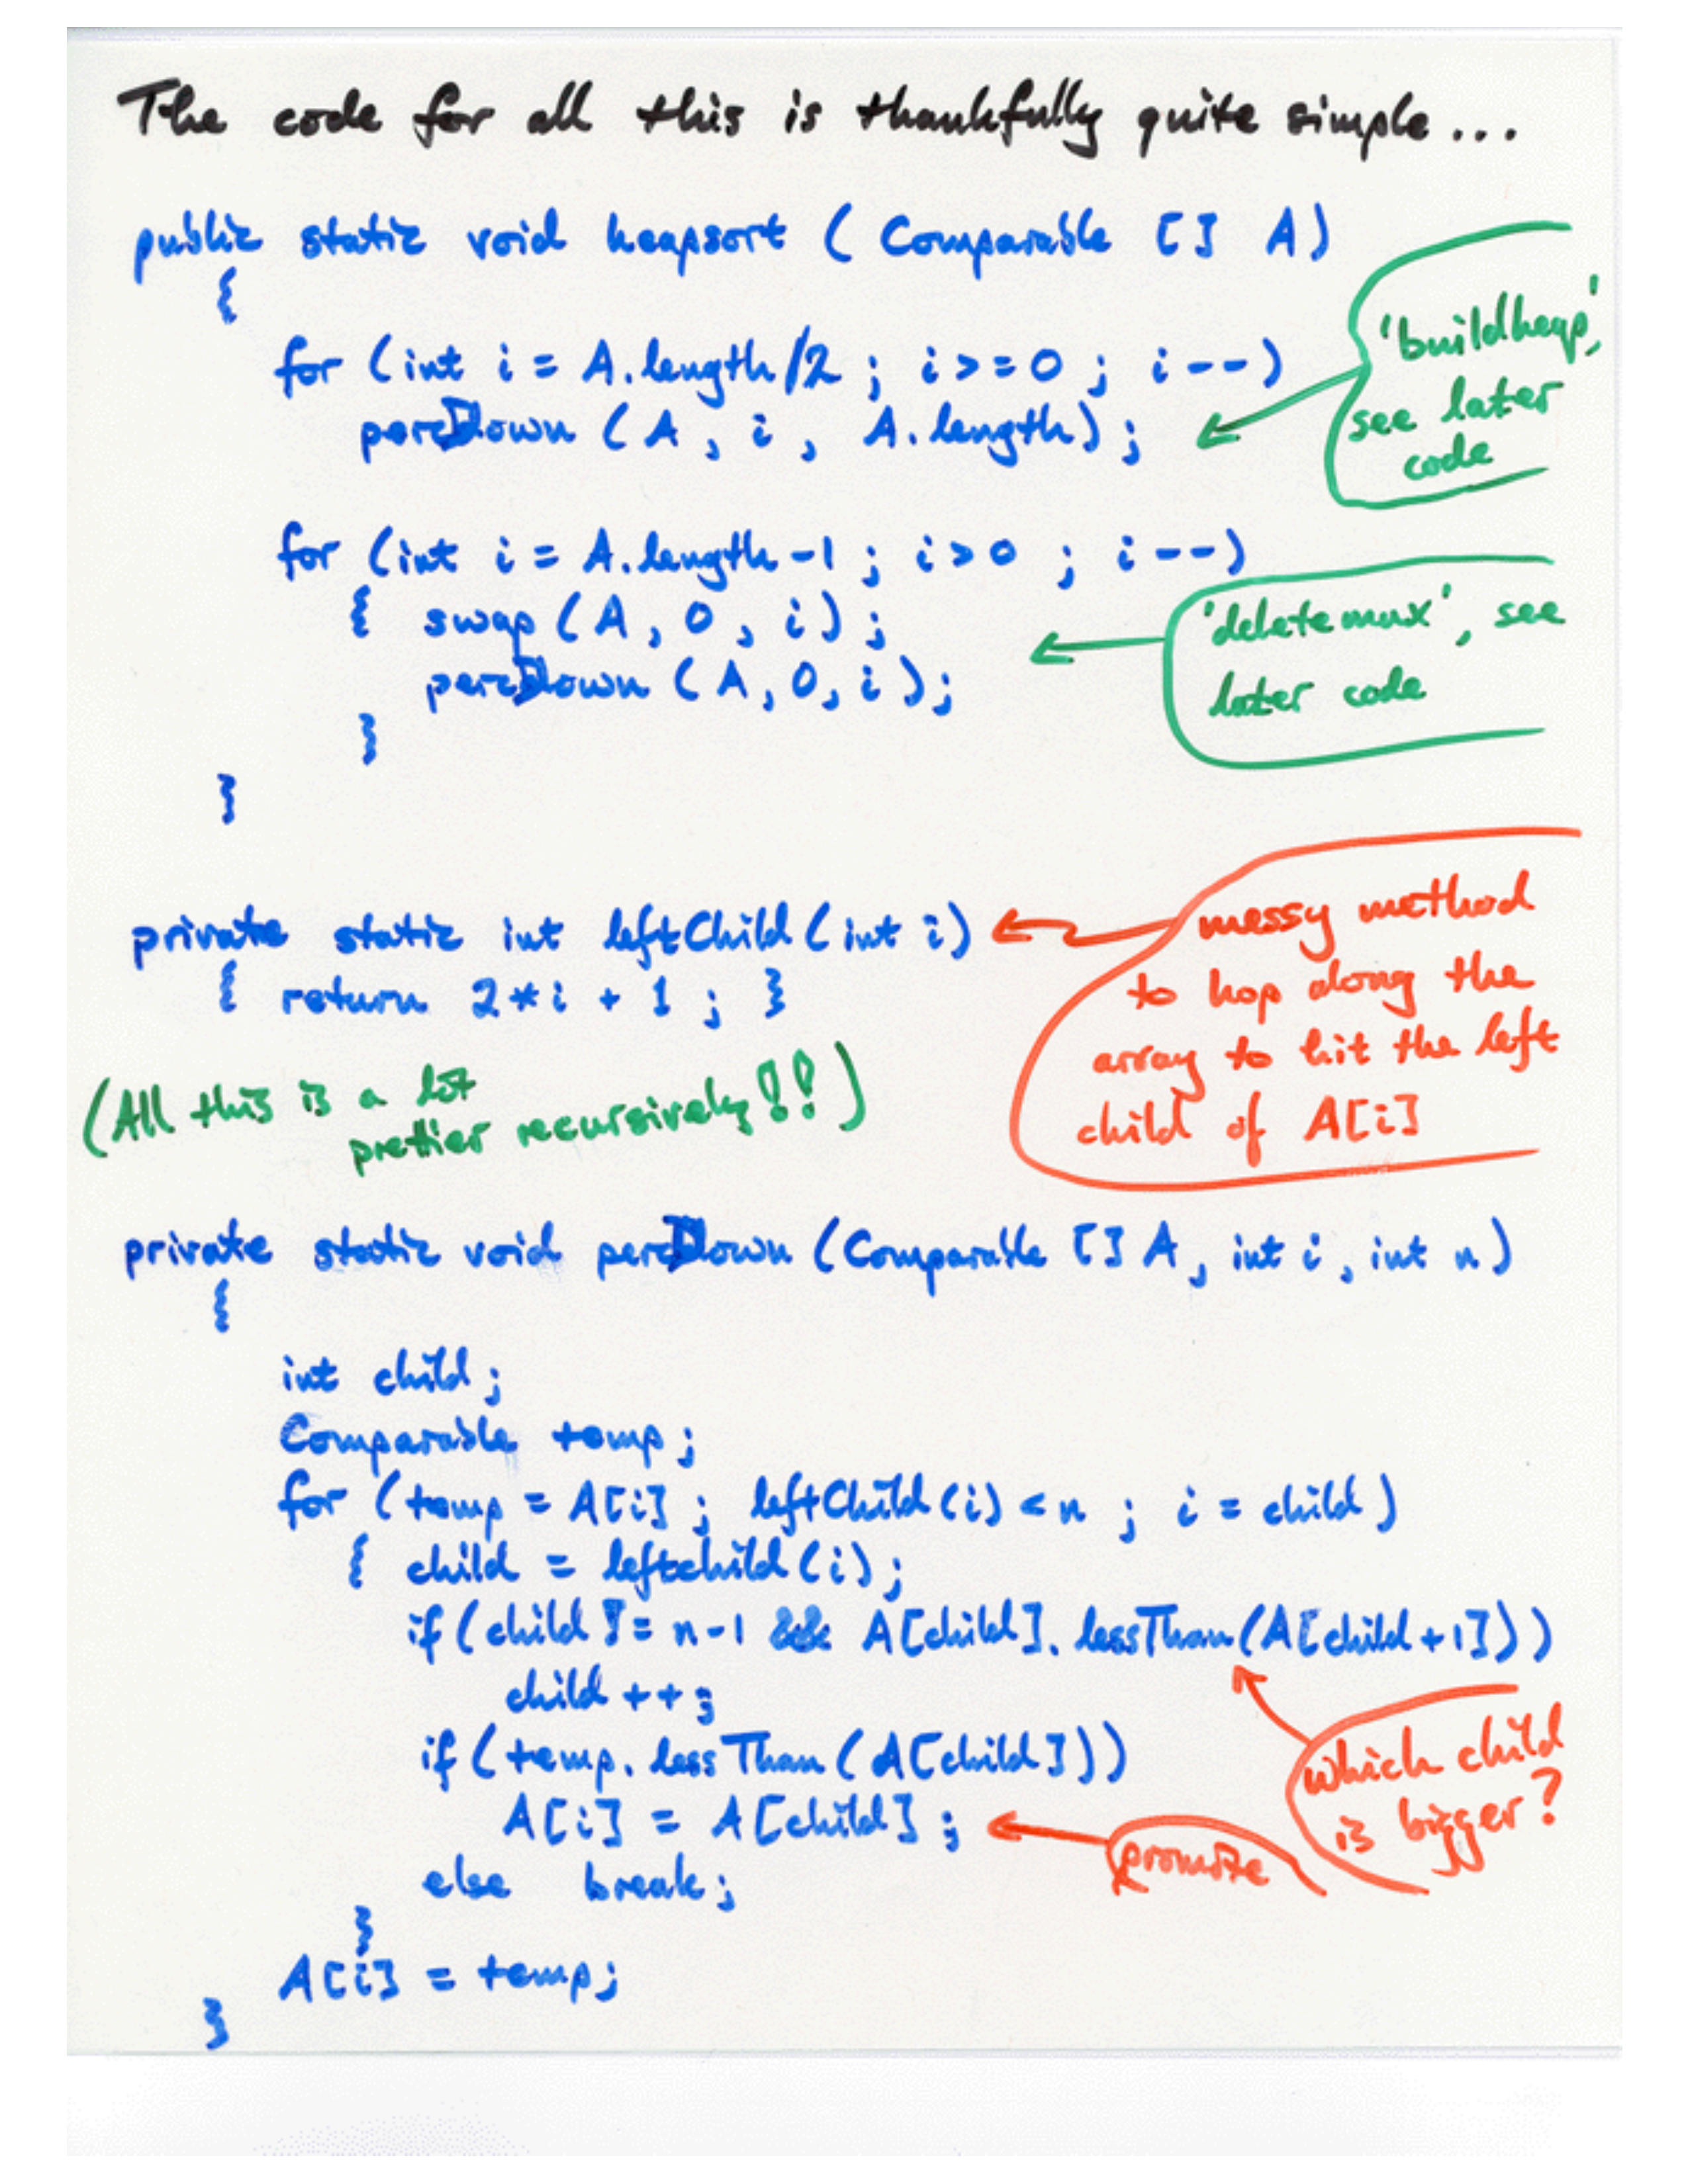 The code for all this is thankfully quite simple...
public static void heapsort ( Comparable [] A )
{
for (int i = A.length/2 ; i >= 0 ; i--)
percDown (A , i , A.length) ;
'buildheap',
see later
code
for (int i = A.length-1 ; i>0 ; i--)
{ swap (A , 0 , i) ;
percDown (A, 0, i);
}
}
'deletemax', see
later code
private static int leftChild (int i)
{ return 2*i + 1 ; }
messy method
to hop along the
array to hit the left
child of A[i]
(All this is a lot
prettier recursively!!)
private static void percDown (Comparable [] A, int i, int n)
{
int child;
Comparable temp;
for (temp = A[i] ; leftChild(i) < n ; i = child)
{ child = leftchild(i);
if (child != n-1 && A[child].lessThan(A[child+1]))
child ++;
if (temp.lessThan (A[child]))
A[i] = A[child] ;
else break;
}
A[i] = temp;
}
which child
is bigger?
promote